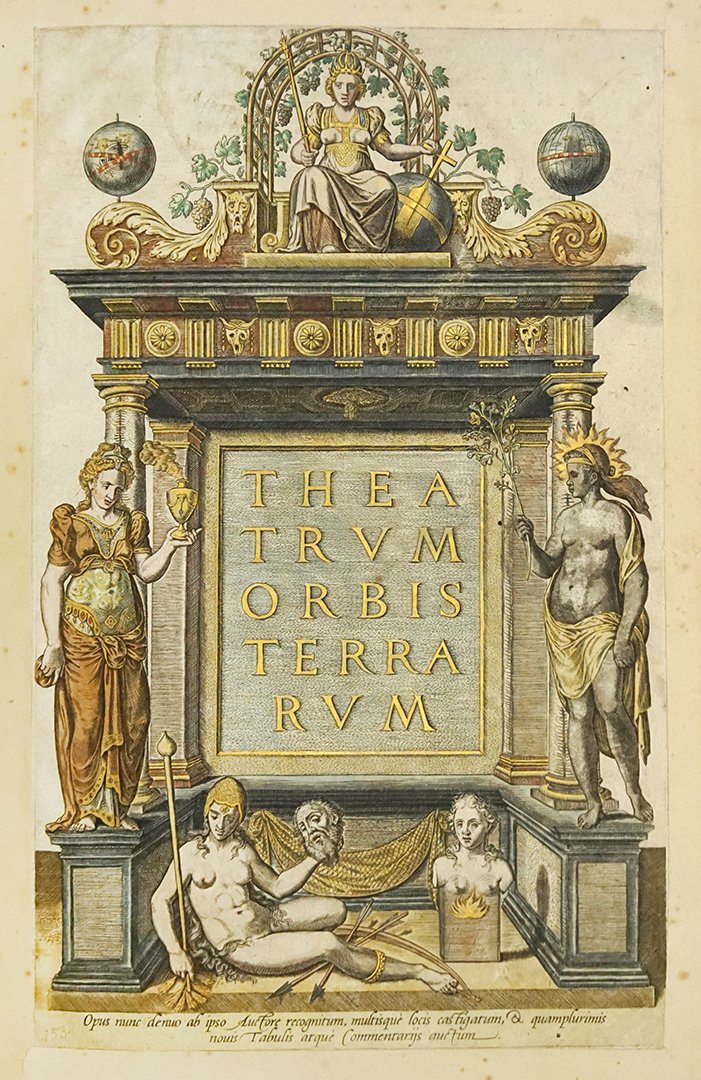 THEA
TRVM
ORBIS
TERRA
RVM
Opus nunc denuo ab ipso Auctore recognitum, multisquè locis castigatum, & quamplurimis
nouis Tabulis atque Commentarijs auctum